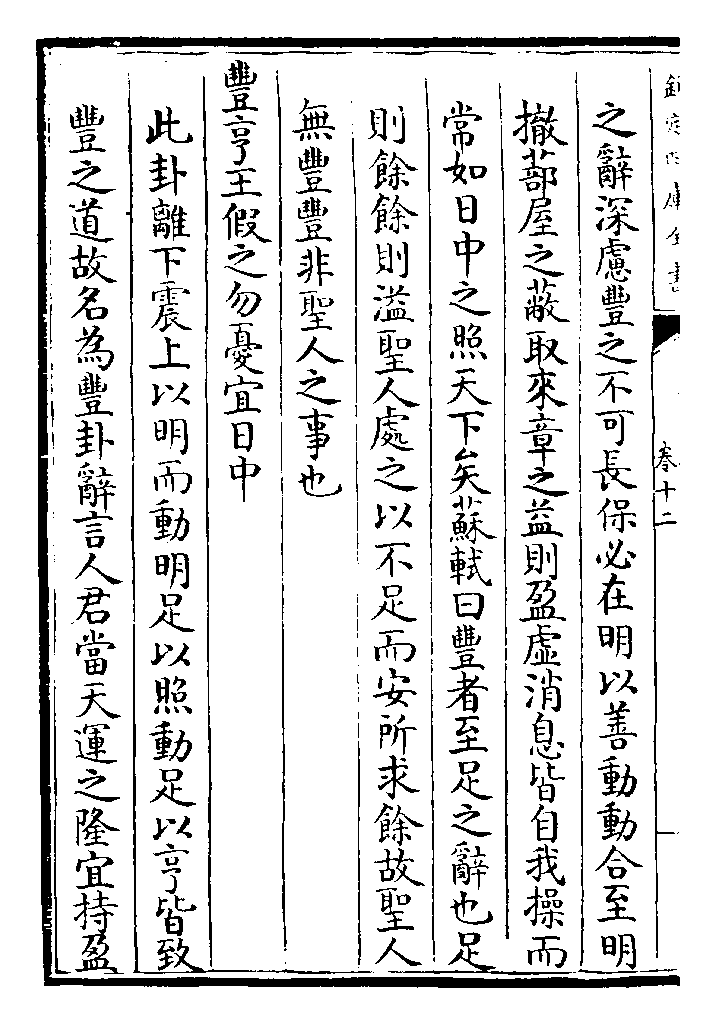 欽定四庫全書
卷十二
之辭深慮豐之不可長保必在明以善動動合至明
撤蔀屋之蔽取來章之益則盈虛消息皆自我操而
常如日中之照天下矣蘇軾曰豐者至足之辭也足
則餘餘則溢聖人處之以不足而安所求餘故聖人
無豐豐非聖人之事也
豐亨王假之勿憂宜日中
此卦離下震上以明而動明足以照動足以亨皆致
豐之道故名為豐卦辭言人君當天運之隆宜持盈